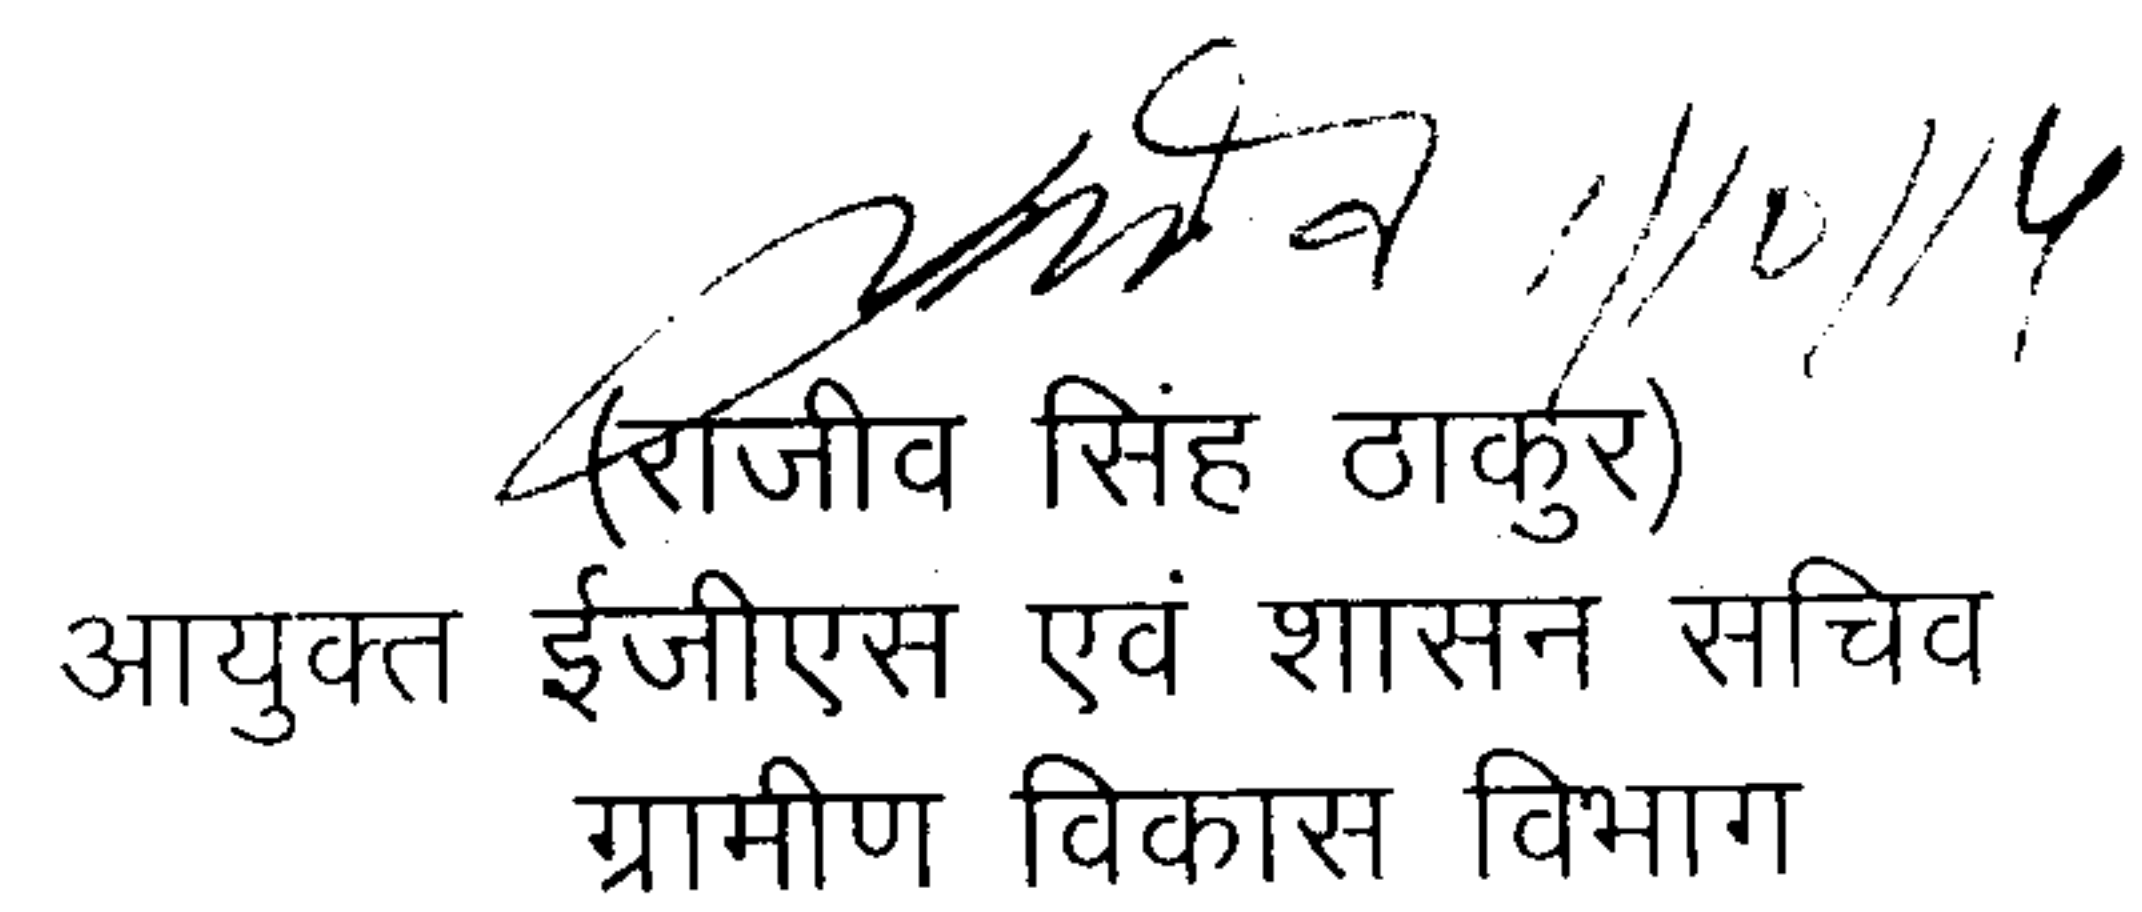 (राजीव सिंह ठाकुर)
आयुक्त ईजीएस एवं शासन सचिव
ग्रामीण विकास विभाग